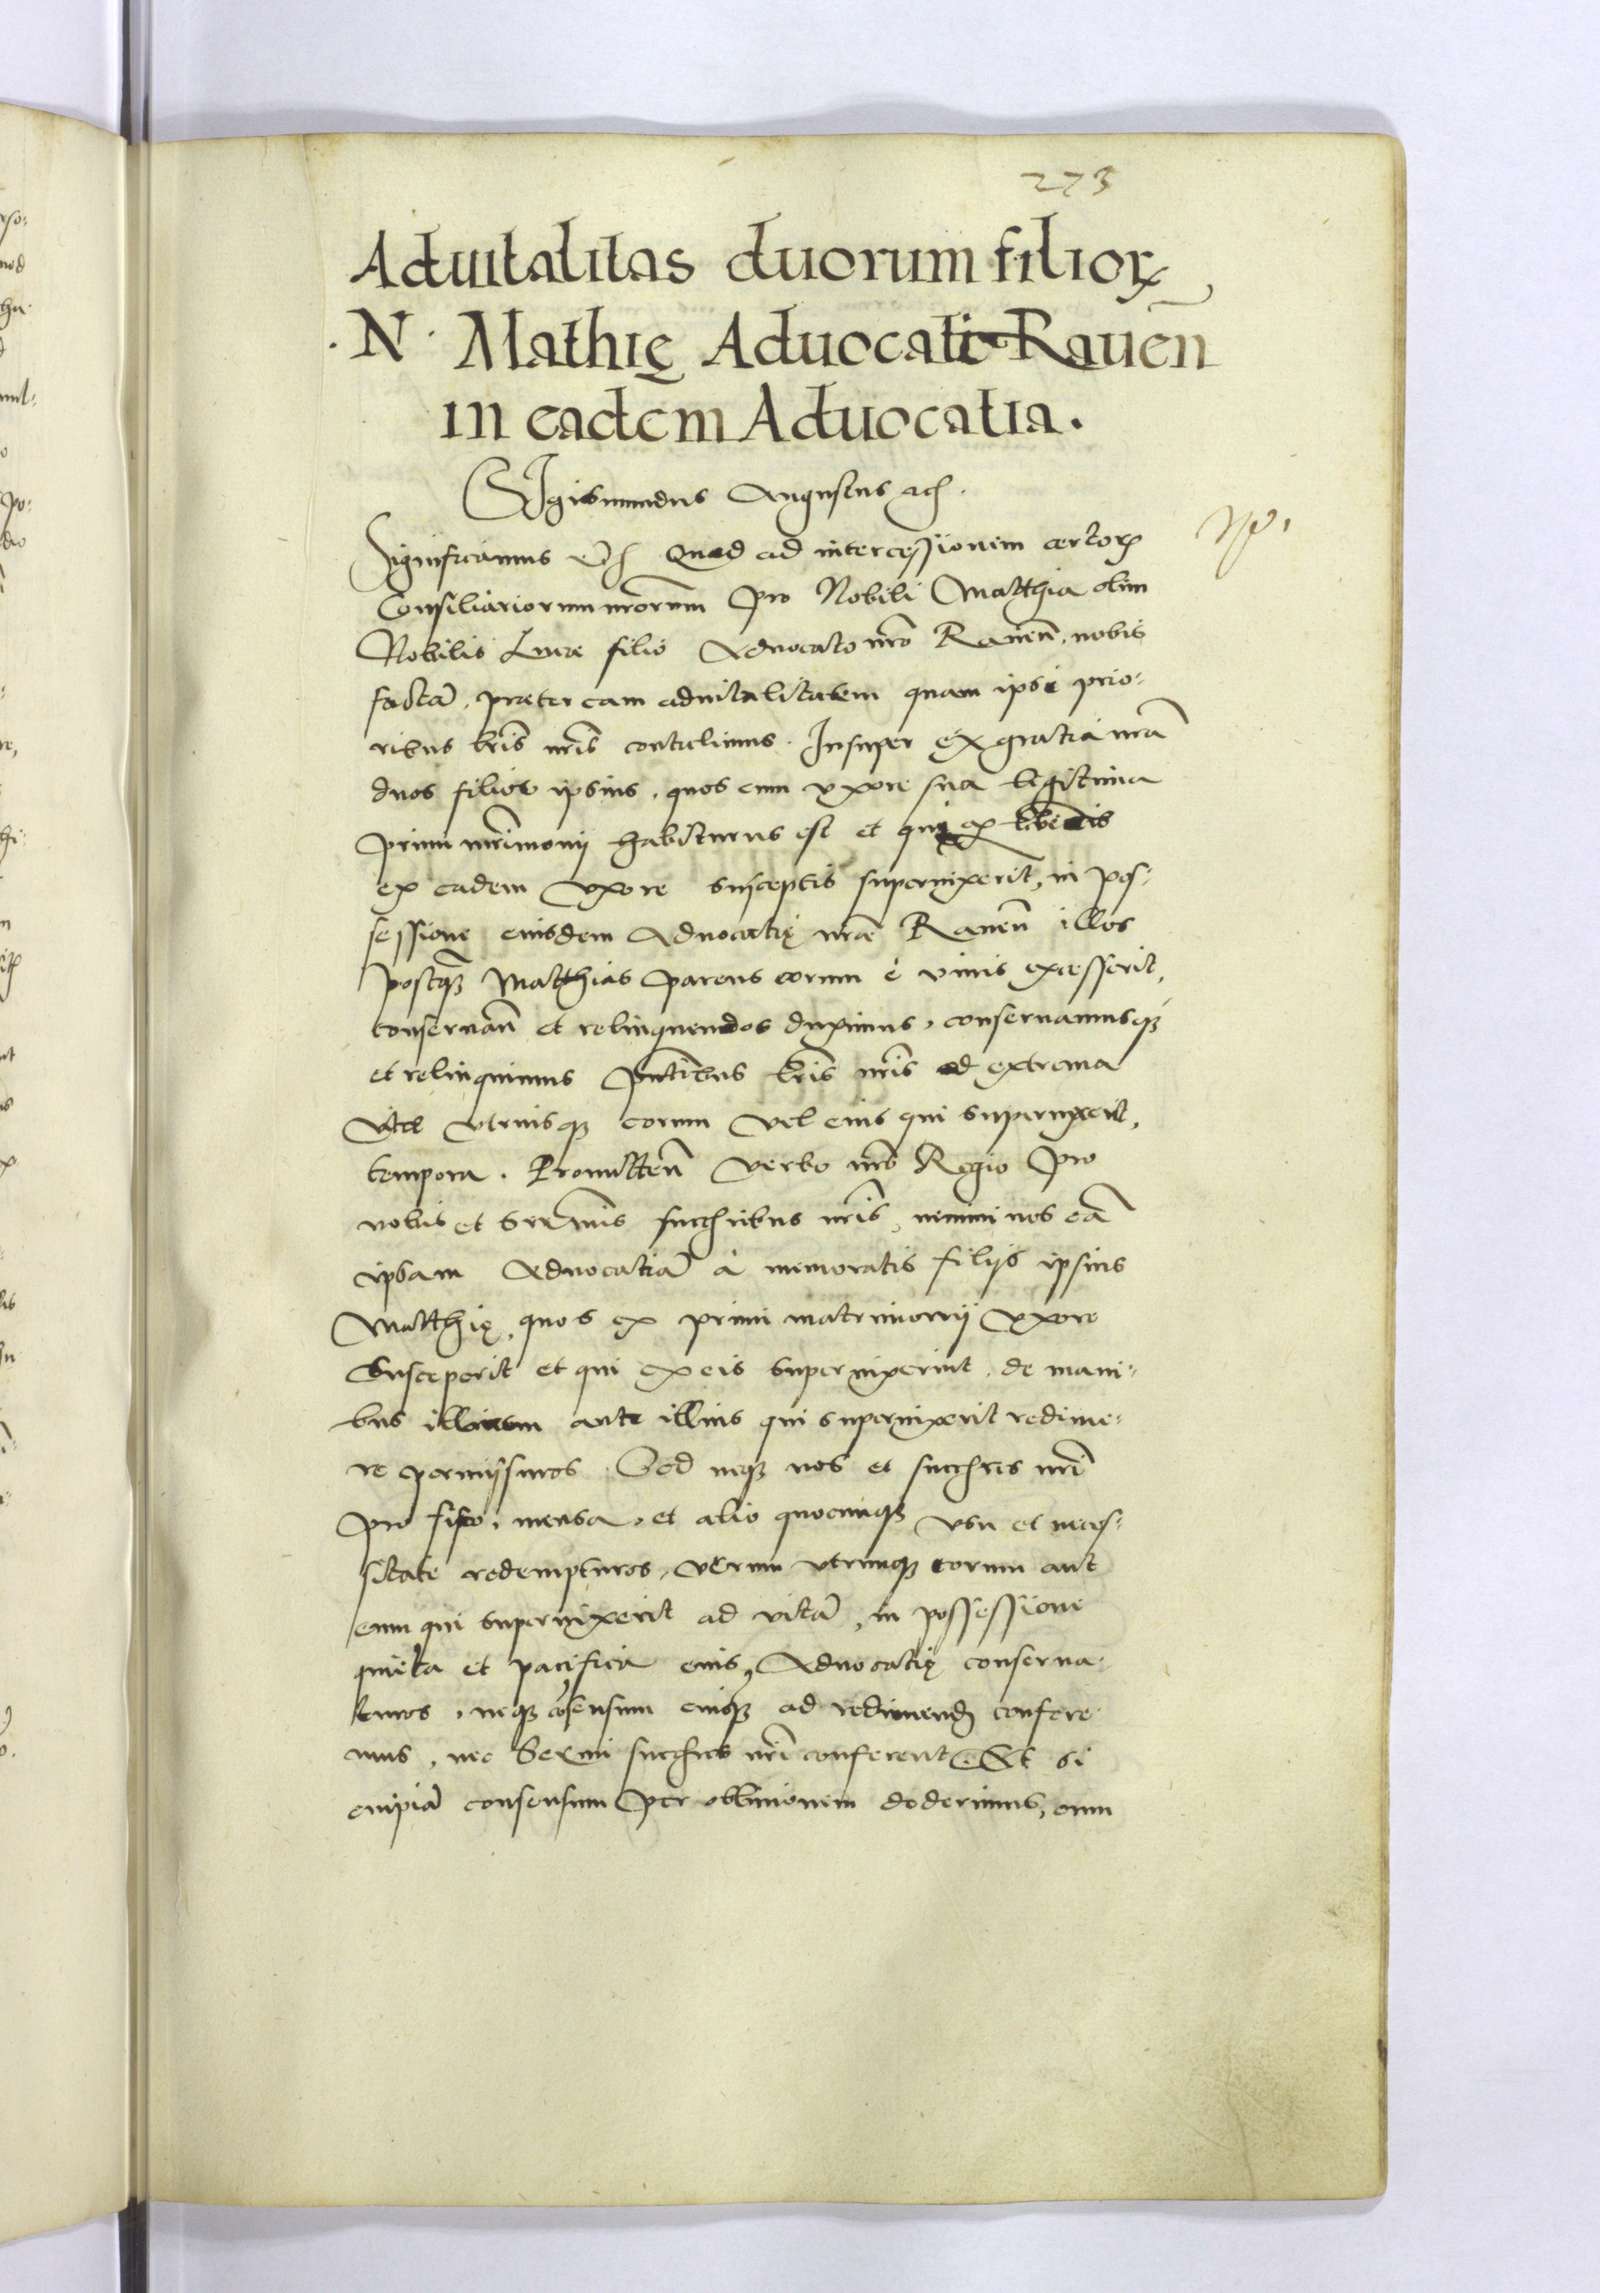 273
Aduitalitas duorum filiorꝝ
·N· Mathię Aduocati Rauen̄
in eadem Aduocatia.
Sigismundus Augustus etc.
Significamus etc. Quod ad intercessionem certorꝝ
Consiliariorum nrorum pro Nobili Matthia olim
Nobilis Lucæ filio Aduocato nro Rauen̄. nobis
factā, præter eam aduitalitatem quam ipsi prio-
ribus lris nris contulimus. Insuper ex gratia nrā
duos filios ipsius, quos cum vxore sua legittima
primi mrimonij habiturus est et qui ex liberis
ex eadem vxore susceptis superuixerit, in pos-
sessione eiusdem Aduocatię nræ Rauen̄ illos
postqꝫ Matthias parens eorum è viuis excesserit,
conseruan̄ et relinquendos duximus, conseruamusqꝫ
et relinquimus pntibus lris nris ad extrema
vitæ vtriusqꝫ eorum vel eius qui superuixerit,
tempora. Promitten̄ verbo nro Regio pro
nobis et Sermis succribus nris, nemini nos eā
ipsam Aduocatiā à memoratis filijs ipsius
Matthię, quos ex primi matrimonij vxore
susceperit et qui ex eis superuixerint, de mani-
bus illorum aut illius qui superuixerit redime-
re permissuros. Sed neqꝫ nos et succres nri
pro fisco, mensa, et alio quocunqꝫ vsu et neces-
sitate redempturos, verum vtrunqꝫ eorum aut
eum qui superuixerit ad vitā, in possessione
quieta et pacifica eius, Aduocatię conserua-
turos, neqꝫ cōsensum cuiqꝫ ad redimend confere-
mus, nec Sermi succres nri conferent. Et si
cuipiā consensum per obliuionem dederimus, eum